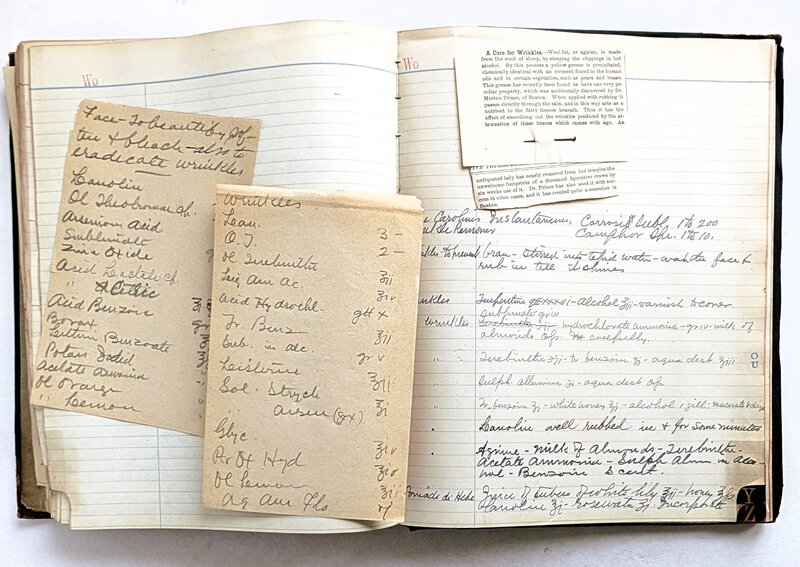 Wo
Face - To beautify, sof
ten & bleach - also to
eradicate wrinkles
Lanolin
Ol Theobromae
Arsenious Acid
Sublimate
Zinc Oxide
Acid Lactate
Acetic
Acid Benzoin
Borax
Benzoate
Potass Iodid
Acetate Ammonia
Ol Orange
" Lemon
Wrinkles
3 -
O. T. 2 -
Ol Terebinth ʒii
Liq Am Ac. ʒiv
Acid Hydrochl. gtt x
Tr Benz ʒii
Sub. in alc gr v
Listerine ʒii
Sol. Strych ʒi
arsen (gtx)
Glyc ʒiv
Per Ox Hyd ʒiv
Ol Lemon ʒii
Aq Aur Flo
Wo
A Cure for Wrinkles.—Wool-fat, or agnine, is made
from the wool of sheep, by steeping the clippings in hot
alcohol. By this process a yellow grease is precipitated,
chemically identical with an element found in the human
oils and in certain vegetables, such as pears and beans.
This grease has recently been found to have one very pe-
culiar property, which was accidentally discovered by Dr.
Morton Prince, of Boston. When applied with rubbing it
passes directly through the skin, and in this way acts as a
nutrient to the fatty tissues beneath. Thus it has the
effect of smoothing out the wrinkles produced by the at-
tenuation of these tissues which comes with age. An
antiquated lady has nearly removed from her temples the
unwelcome footprints of a thousand figurative crows by
six weeks use of it. Dr. Prince has also used it with suc-
cess in other cases, and it has created quite a sensation in
Boston
Carolinis Instantaneum. Corrosiv Subl. 1 to 200
Remover Camphor Spr. 1 to 10.
to prevent bran - stirred into tepid water - wash the face &
rub in till it shines
alcohol ʒii - varnish to cover.
Wrinkles sublimate gr iv
hydrochlorate ammonia - gr iv - milk of
almonds carefully.
" Terebinthe ʒii - tr benzoin ʒi - aqua dest ʒiii
" Sulph allumina ʒi - aqua dest
" Tr benzoin ʒi - white honey ʒi - alcohol 1 gill - macerate 8 days
" Lanolin well rubbed in & for some minutes
" Agnine - milk of Almonds - Terebinth -
Acetate Ammonia - Sulph Alum in Alco-
hol - Benzoin & cert.
Pomade de Hebe Juice of tubers of white lily ʒii - honey
Lanoline ʒi - rosewater ʒi. Incorporate
YZ